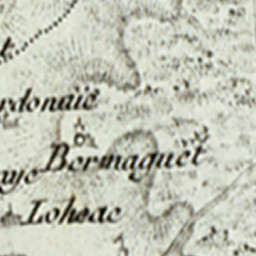 rdonaie
Bermaquet
aye
Loheac